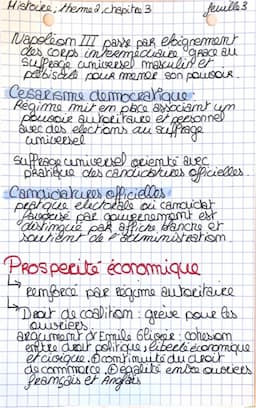 Histoire, theme 2, chapitre 3 feuille 3
Napoléon III passe par éloignement
des corps intermédiaire grace au
suffrage universel masculin et
plébiscite pour mener son pouvoir.
Césarisme démocratique
Régime mit en place associant un
pouvoir autoritaire et personnel
avec des elections au suffrage
universel
suffrage universel orienté avec
pratique des candidatures officielles.
Candidatures officielles
pratique electorale où candidat
favorisé par gouvernement est
distingué par affiche blanche et
soutient de l'administration.
Prosperité économique
↳ renforcé par régime autoritaire
↳ Droit de coalition : grève pour les
ouvriers.
argument d'Emile Olivier : cohesion
entre droit politique, liberté économique
et civique. ② continuité du droit
de commerce. ③ égalité entre ouvriers
français et Anglais